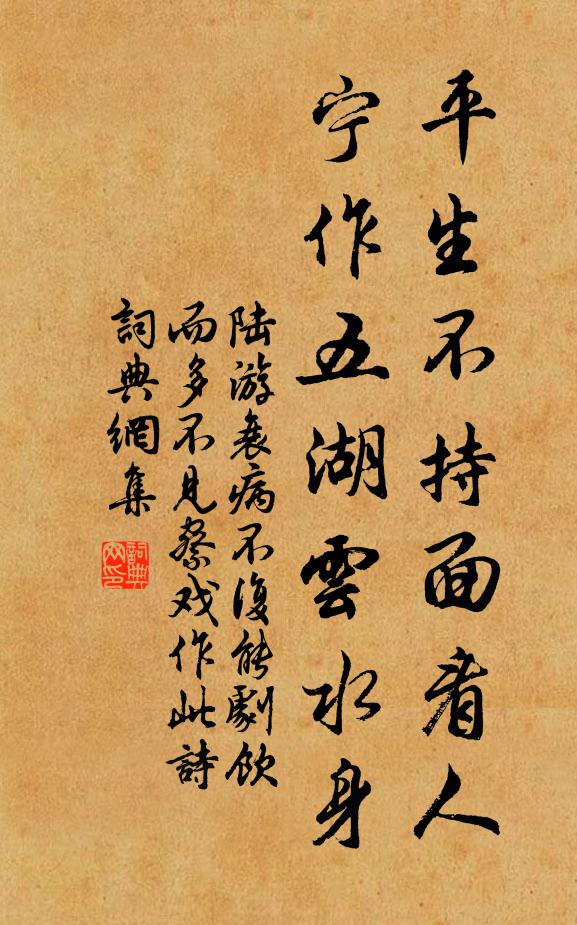 平生不持面看人
宁作五湖雲水身
陆游衰病不復能劇飲
而多不見察戏作此詩
詞典網集
詞典网印